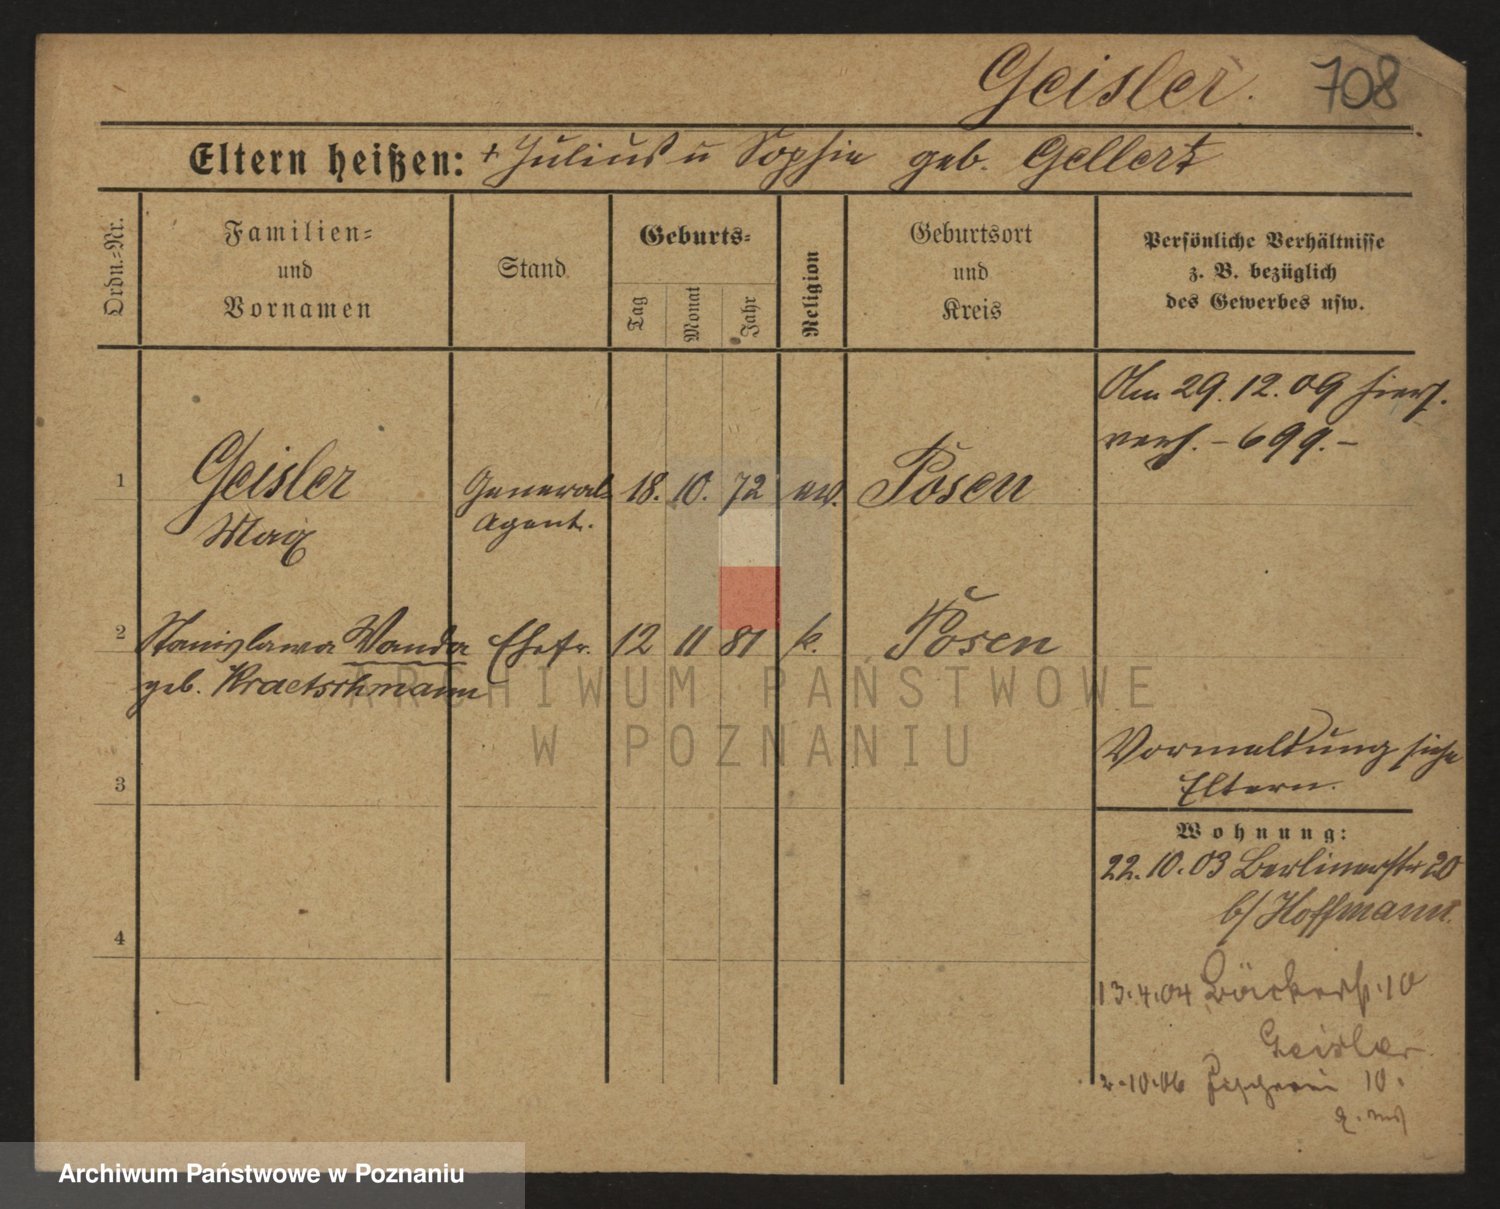 Geisler. 708
Eltern heißen: + Julius u Sophie geb. Gellert
Ordn.-Nr.
Familien-
und
Vornamen
Stand
Geburts-
Tag
Monat
Jahr
Religion
Geburtsort
und
Kreis
Persönliche Verhältnisse
z. B. bezüglich
des Gewerbes usw.
Am 29.12.09 hiers.
verh. - 699. -
1 Geisler General- 18. 10. 72 ev. Posen
Max Agent.
2 Stanislawa Wanda Ehefr. 12 11 81 k. Posen
geb. Kraetschmann
ARCHIWUM PAŃSTWOWE
W POZNANIU
Vormeldung siehe
Eltern.
3
Wohnung:
22.10.03 Berlinerstr 20
b/ Hoffmann.
4
13.4.04 Bäckerstr. 10
Geisler
2.10.06 10.
Archiwum Państwowe w Poznaniu